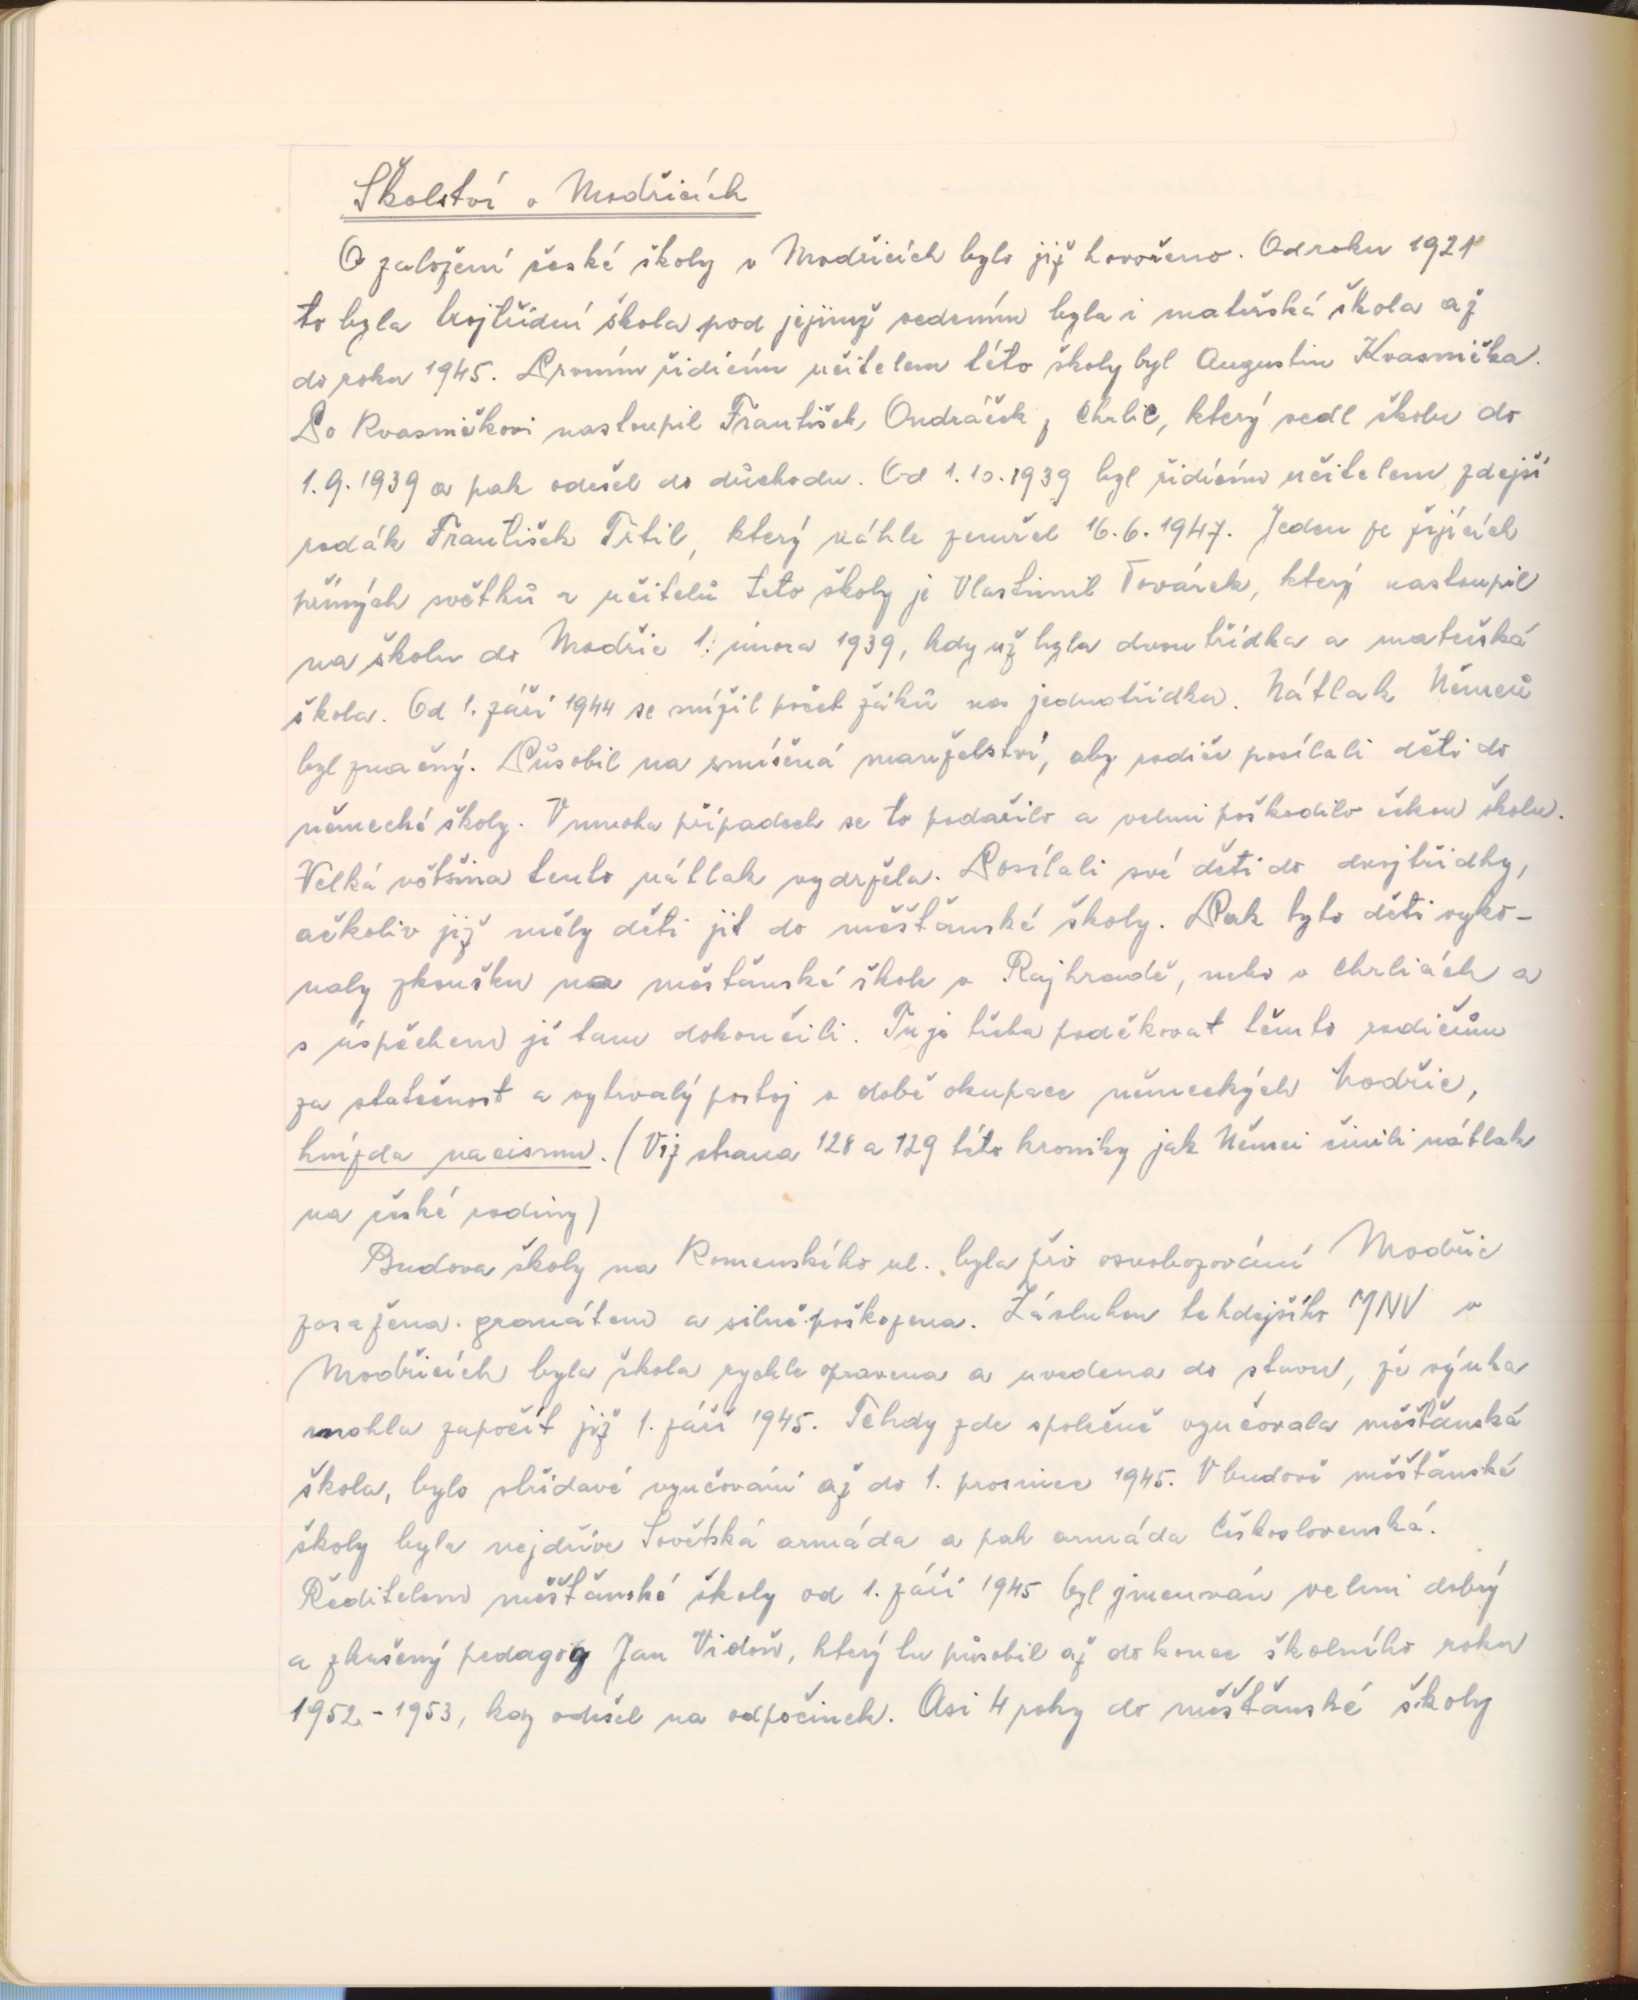 Školství v Modřicích
O založení české školy v Modřicích bylo již hovořeno. Od roku 1921
to byla trojtřídní škola pod jejímž vedením byla i mateřská škola až
do roku 1945. Prvním řídícím učitelem této školy byl Augustin Kvasnička.
Po Kvasničkovi nastoupil František Ondráček z Chrlic, který vedl školu do
1.9.1939 a pak odešel do důchodu. Od 1.10.1939 byl řídícím učitelem zdejší
rodák František Títil, který náhle zemřel 16.6.1947. Jeden ze žijících
přímých svědků z učitelů této školy je Vlastimil Továrek, který nastoupil
na školu do Modřic 1. února 1939, kdy už byla dvoutřídka a mateřská
škola. Od 1. září 1944 se snížil počet žáků na jednotřídku. Nátlak Němců
byl značný. Působil na smíšená manželství, aby rodiče posílali děti do
německé školy. V mnoha případech se to podařilo a velmi poškodilo českou školu.
Velká většina tento nátlak vydržela. Posílali své děti do dvojtřídky,
ačkoliv již měly děti jít do měšťanské školy. Pak tyto děti vyko-
naly zkoušku na měšťanské škole v Rajhradě, nebo v Chrlicích a
s úspěchem ji tam dokončili. Tu je třeba poděkovat těmto rodičům
za statečnost a vytrvalý postoj v době okupace německých Modřic,
hnízda nacismu. (Viz strana 128 a 129 této kroniky jak Němci činili nátlak
na české rodiny)
Budova školy na Komenského ul. byla při osvobozování Modřic
zasažena granátem a silně poškozena. Zásluhou tehdejšího MNV v
Modřicích byla škola rychle opravena a uvedena do stavu, že výuka
mohla započít již 1. září 1945. Tehdy zde společně vyučovala měšťanská
škola, bylo střídavé vyučování až do 1. prosince 1945. V budově měšťanské
školy byla nejdříve Sovětská armáda a pak armáda Československá.
Ředitelem měšťanské školy od 1. září 1945 byl jmenován velmi dobrý
a zkušený pedagog Jan Vidoň, který tu působil až do konce školního roku
1952-1953, kdy odešel na odpočinek. Asi 4 roky do měšťanské školy